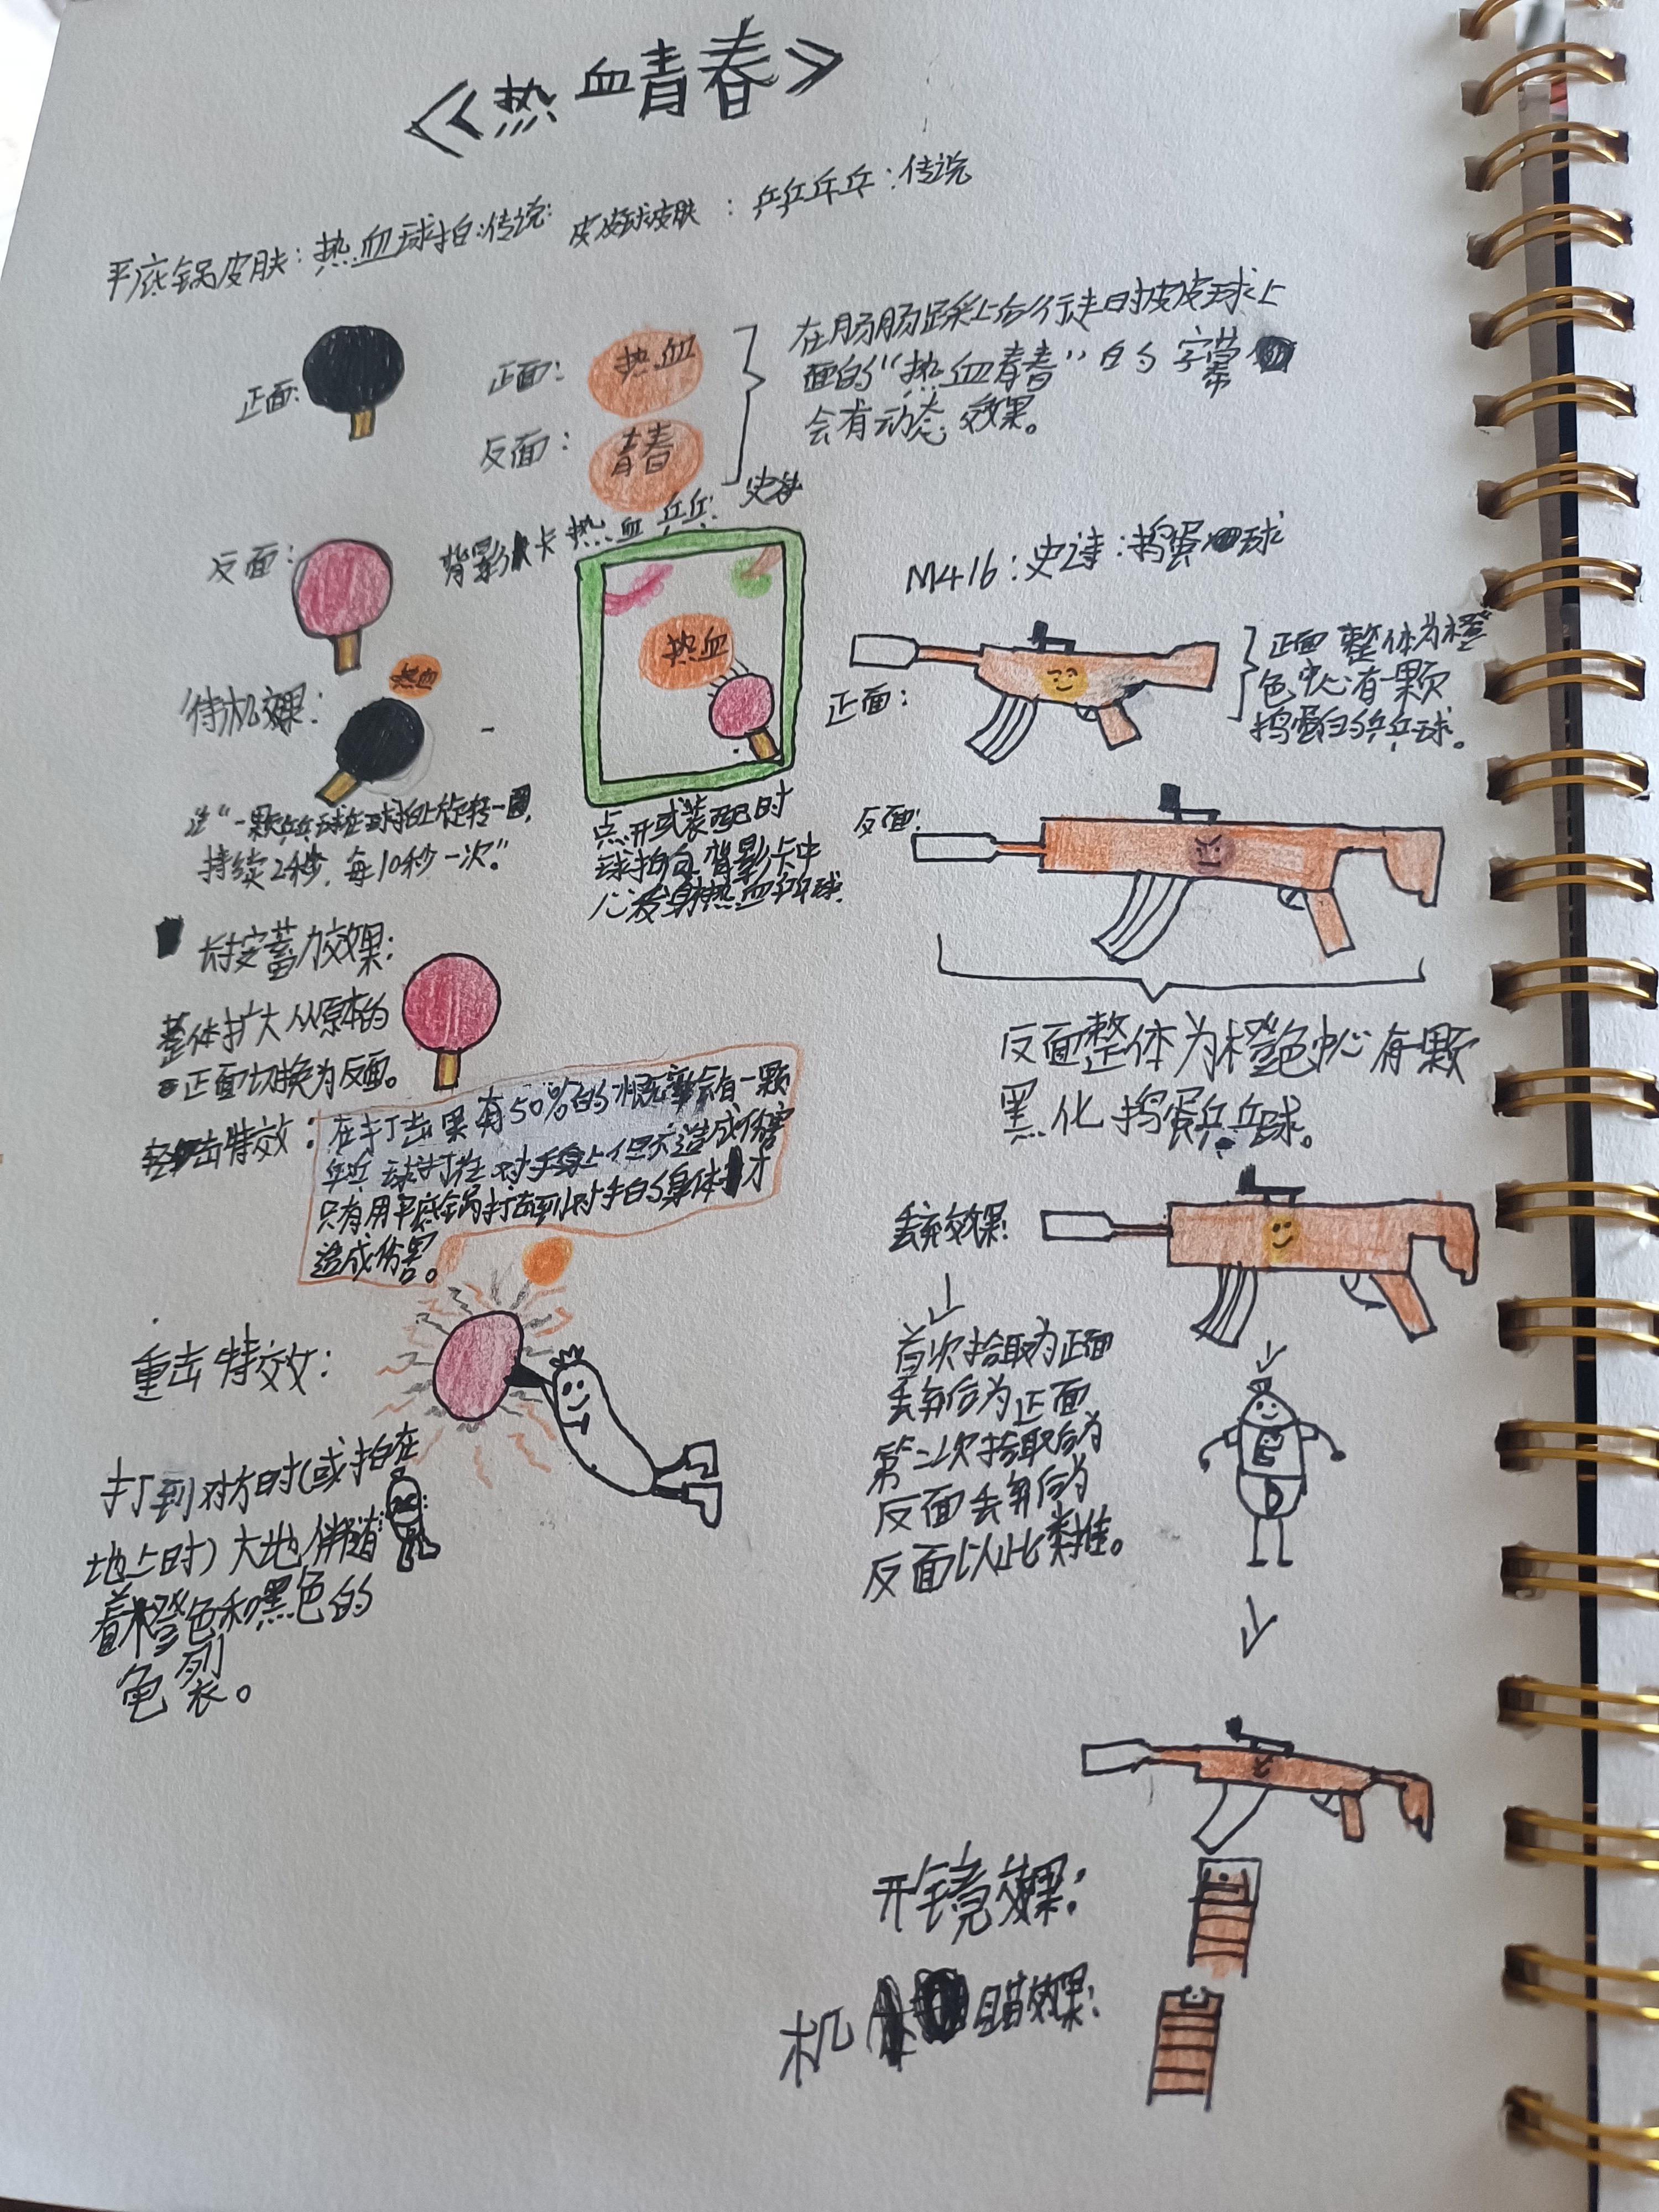 《热血青春》
平底锅皮肤：热血球拍：传说
皮皮球皮肤：乒乒乓乓：传说
正面：
正面：
热血
反面：
青春
在肠肠踩上台行走时皮皮球上
面的“热血青春”的字幕
会有动态效果。
反面：
背影卡热血乒乓：史诗
热血
待机效果：
热血
注“一颗乒乓球在球拍上旋转一圈，
持续2秒，每10秒一次”
点开或装配时
球拍向背影卡中
心发射热血乒乓球.
长按蓄力效果：
整体扩大从原本的
正面切换为反面。
轻击特效：
在打击果有50%的概率会有一颗
乒乓球打在对手身上但不造成伤害
只有用平底锅打击到对手的身体才
造成伤害。
重击特效：
打到对方时（或拍在
地上时）大地伴随
着橙色和黑色的
龟裂。
M416：史诗：捣蛋球
正面：
正面整体为橙
色中心有一颗
捣蛋的乒乓球。
反面：
反面整体为橙色中心有一颗
黑化捣蛋乒乓球。
丢弃效果：
首次拾取为正面
丢弃后为正面
第二次拾取后为
反面丢弃后为
反面以此类推。
开镜效果：
机瞄效果：